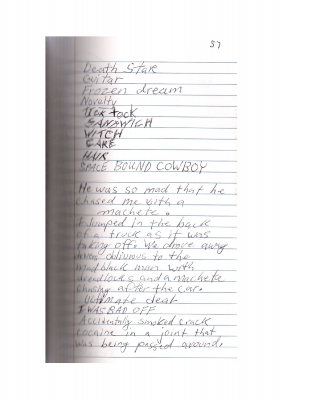 57
Death Star
Guitar
Frozen dream
Novelty
Tick tock
SANDWICH
WITCH
CARE
HAIR
SPACE BOUND COWBOY
He was so mad that he
chased me with a
machete.
I jumped in the back
of a truck as it was
taking off. We drove away
oblivious to the
mad black man with
dreadlocks and a machete
chasing after the car.
Ultimate dear
I WAS BAD OFF
Accidentally smoked crack
cocaine in a joint that
was being passed around.